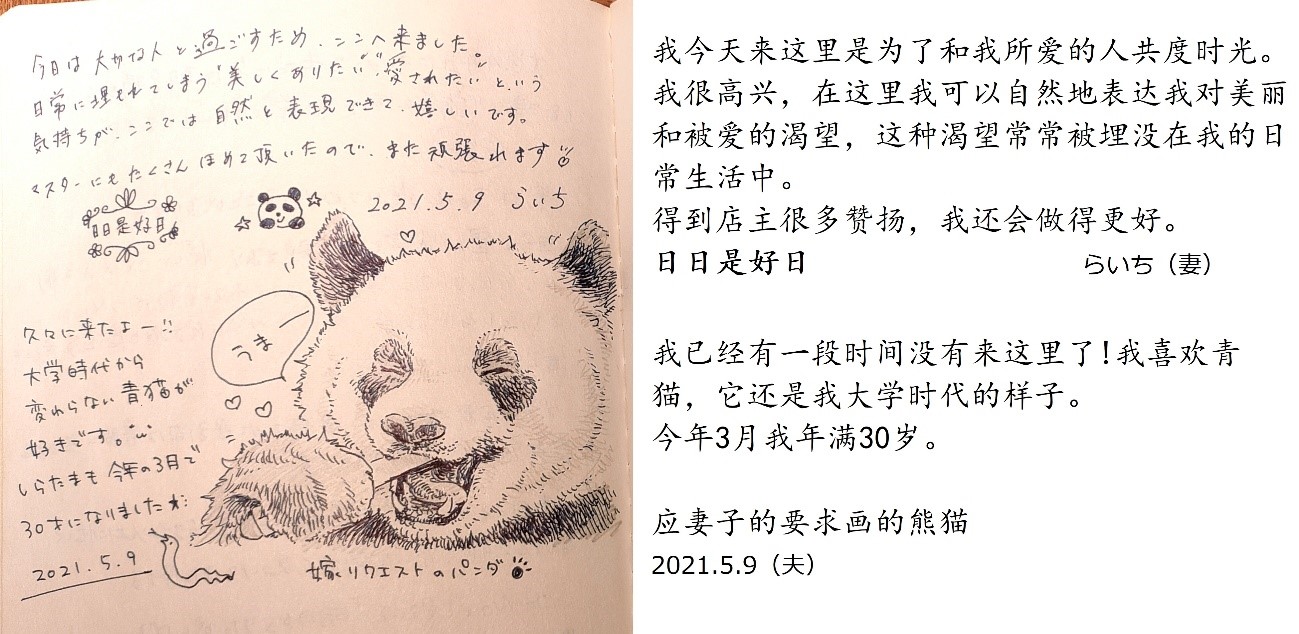 今日は大切な人と過ごすため、ここへ来ました。
日常に埋もれてしまう"美しくありたい""愛されたい"という
気持ちが、ここでは自然と表現できて、嬉しいです。
マスターにもたくさんほめて頂いたので、また頑張れます
日日是好日
2021.5.9 らいち
うまー
久々に来たよー!!
大学時代から
変わらない青猫が
好きです。
しらたまも今年の3月で
30才になりました
2021.5.9
嫁リクエストのパンダ
我今天来这里是为了和我所爱的人共度时光。
我很高兴，在这里我可以自然地表达我对美丽
和被爱的渴望，这种渴望常常被埋没在我的日
常生活中。
得到店主很多赞扬，我还会做得更好。
日日是好日 らいち（妻）
我已经有一段时间没有来这里了!我喜欢青
猫，它还是我大学时代的样子。
今年3月我年满30岁。
应妻子的要求画的熊猫
2021.5.9（夫）